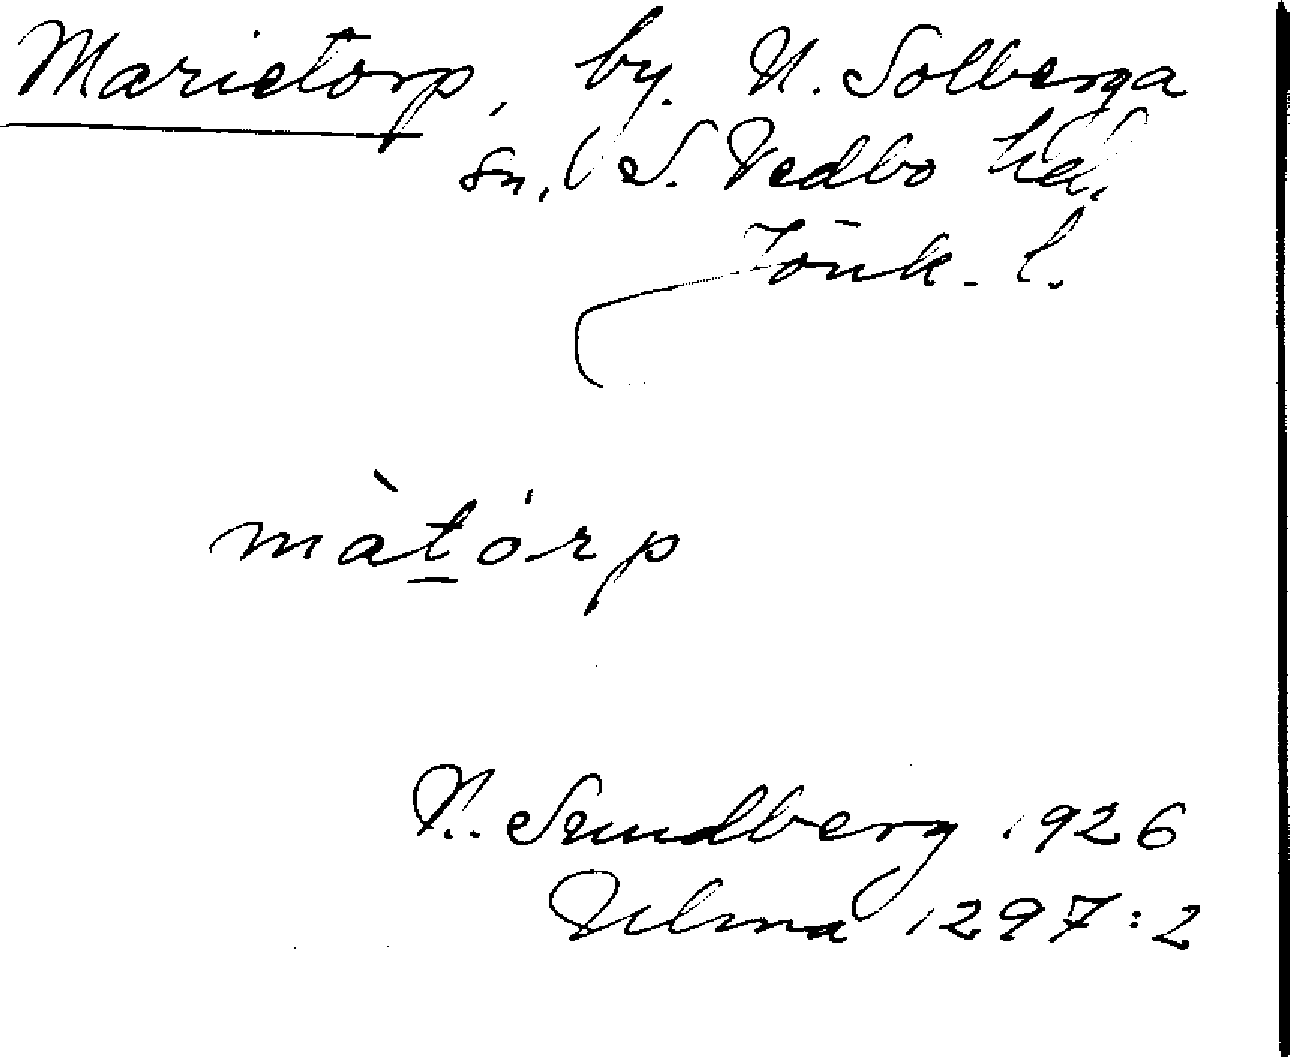 Marietorp, by. N. Solberga
sn, S. Vedbo hd.
Jönk. l.
màtórp
N. Sundberg 1926
Ulma 1297:2